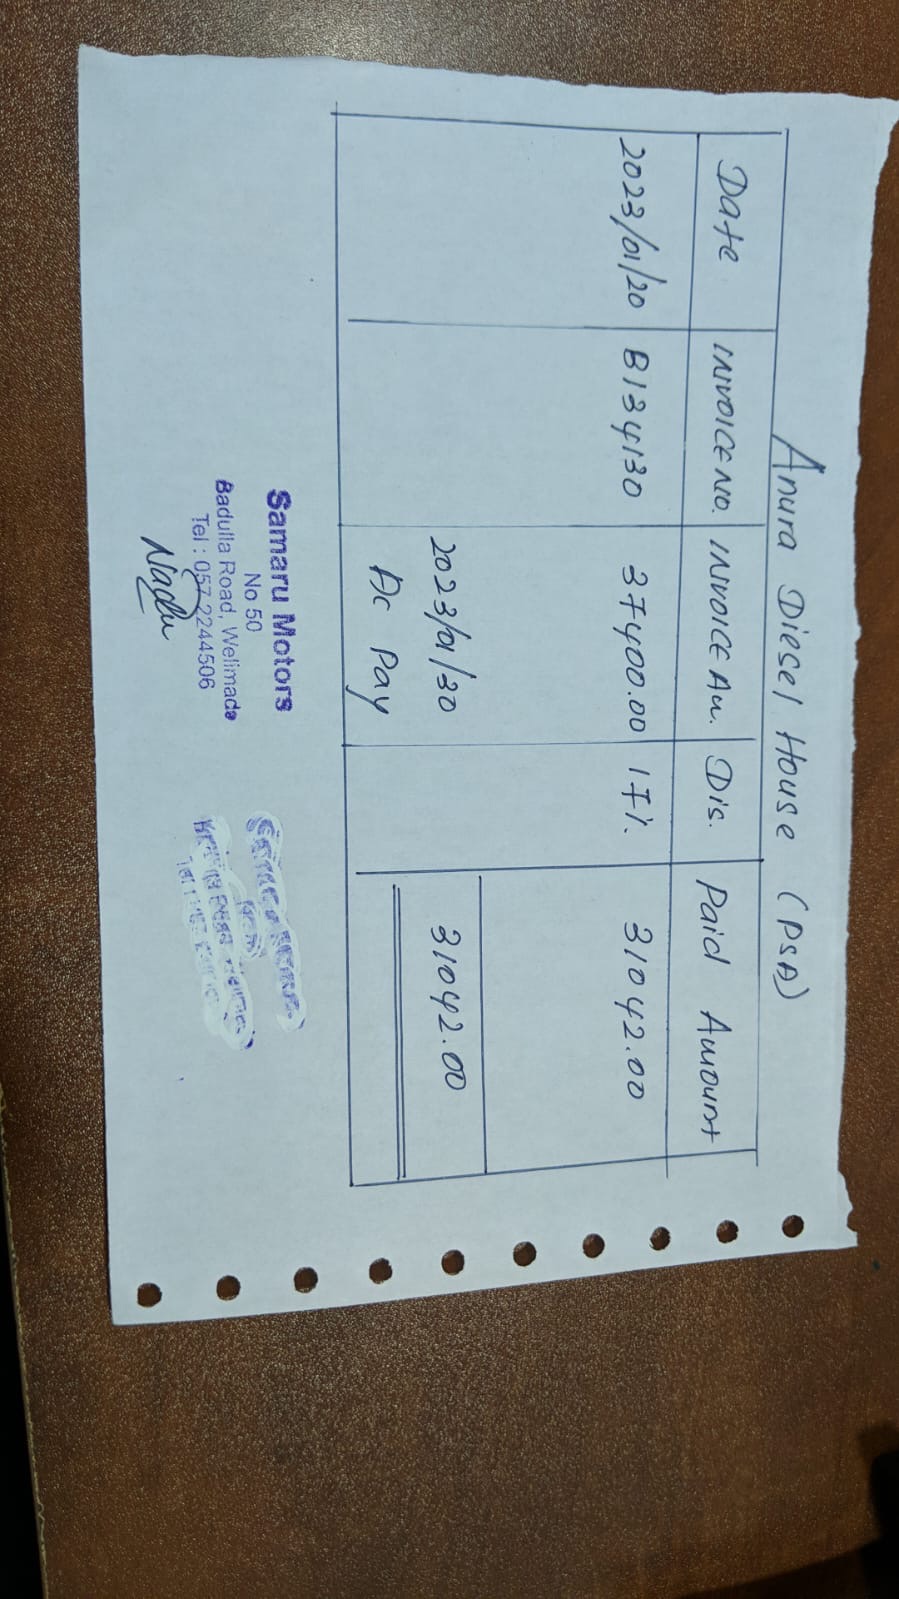 Anura Diesel House (PSA)
Date INVOICE NO. INVOICE Am. Dis. Paid Amount
2023/01/20 B134130 37400.00 17%. 31042.00
2023/01/30 31042.00
Ac Pay
Samaru Motors
No 50
Badulla Road, Welimada
Tel : 057-2244506